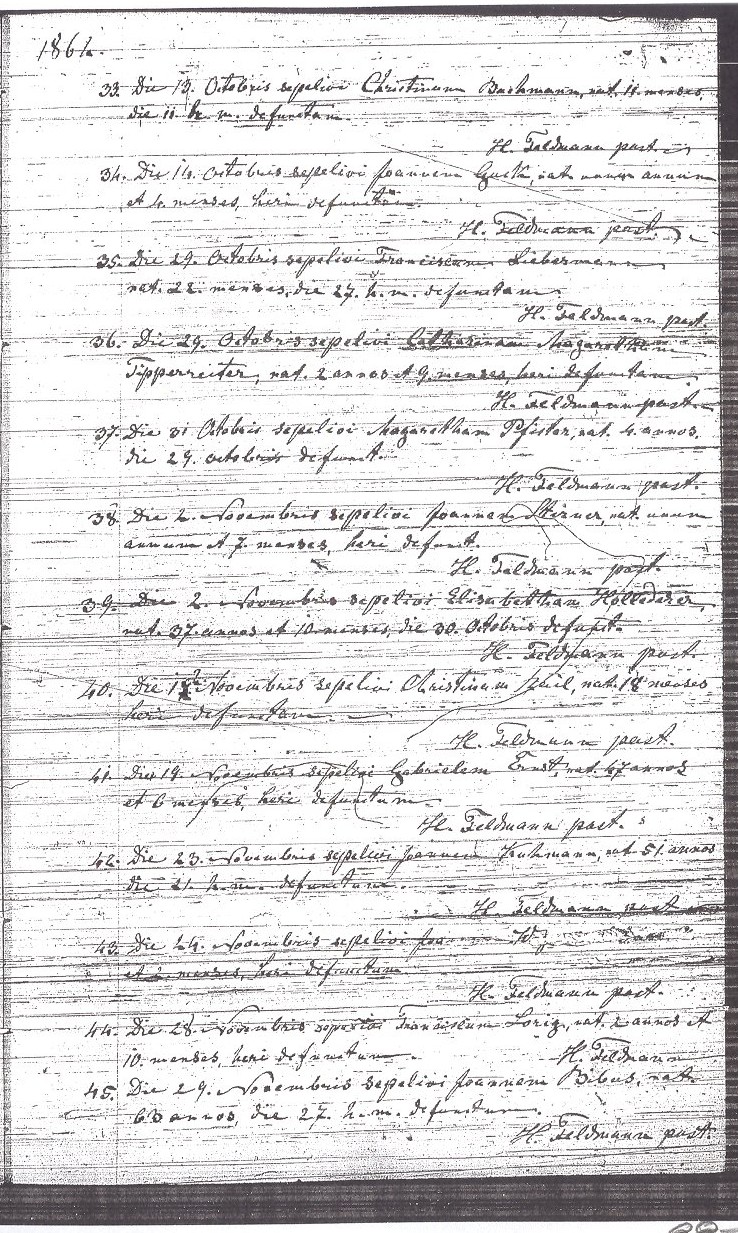 1861.
33. Die 13. Octobris sepelivi Christinam Bachmann, nat. 11 menses,
die 11. h. m. defunctam.
H. Feldmann past.
34. Die 14. Octobris sepelivi Joannem nat. unum annum
et 4 menses, heri defunctum
H. Feldmann past.
35. Die 29. Octobris sepelivi Franciscum Liebermann
nat. 22. menses, die 27. h. m. defunctum.
H. Feldmann past.
36. Die 29. Octobris sepelivi Catharinam Magaretham
Tipperreiter, nat. 2 annos et 9 menses, heri defunctam.
H. Feldmann past.
37. Die 31 Octobris sepelivi Magaretham Pfister, nat. 4. annos,
die 29. octobris defunct.
H. Feldmann past.
38. Die 2. Novembris sepelivi Joannem Stirner, nat. unum
annum et 7. menses, heri defunct.
H. Feldmann past.
39. Die 2. Novembris sepelivi Elisabetham Hollederer,
nat. 37. annos et 10 menses, die 30. Octobris defunct.
H. Feldmann past.
40. Die Novembris sepelivi Christinam nat. 18 menses
heri defunctam.
H. Feldmann past.
41. Die 19. Novembris sepelivi Gabrielem Ernst, nat. 47 annos
et 6 menses, heri defunctum.
H. Feldmann past.
42. Die 23. Novembris sepelivi Joannem nat. 51. annos
die 21. h. m. defunctum.
H. Feldmann past
43. Die 24. Novembris sepelivi
et 2. menses, heri defunctum
H. Feldmann past.
44. Die 28. Novembris sepelivi Franciscum Loriz, nat. 2 annos et
10. menses, heri defunctum.
H. Feldmann
45. Die 29. Novembris sepelivi Joannem Bibus, nat.
63 annos, die 27. h. m. defunctum.
H. Feldmann past.